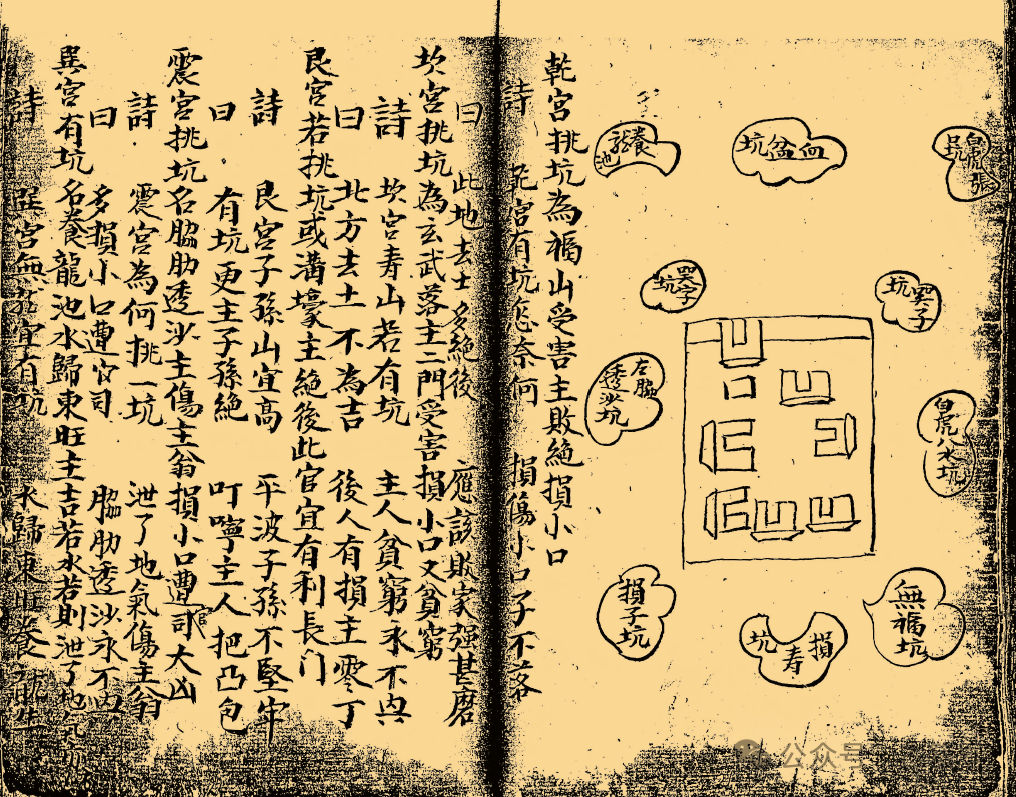 白虎張口坑
血盆坑
養龍池
哭子坑
哭子坑
左脇透沙坑
白虎八水坑
損子坑
損壽坑
無福坑
乾宮挑坑為福山受害主敗絕損小口
詩 乾宮有坑怎奈何 損傷小口子不落
曰 此地去土多絕後 應該敗家强甚磨
坎宮挑坑為玄武落主二門受害損小口又貧窮
詩 坎宮青山若有坑 主人貧窮永不興
曰 北方去土不為吉 後人有損主零丁
艮宮若挑坑或溝壕主絕後此宮宜有利長门
詩 艮宮子孫山宜高 平波子孫不堅牢
曰 有坑更主子孫絕 叮嚀主人把凸包
震宮挑坑名脇肋透沙主傷主翁損小口遭官司大凶
詩 震宮為何挑一坑 泄了地氣傷主翁
曰 多損小口遭官司 脇肋透沙永不興
巽宮有坑名養龍池水歸東旺主吉若水若則泄了地氣
詩 巽宮無 宜有坑 水歸東 養